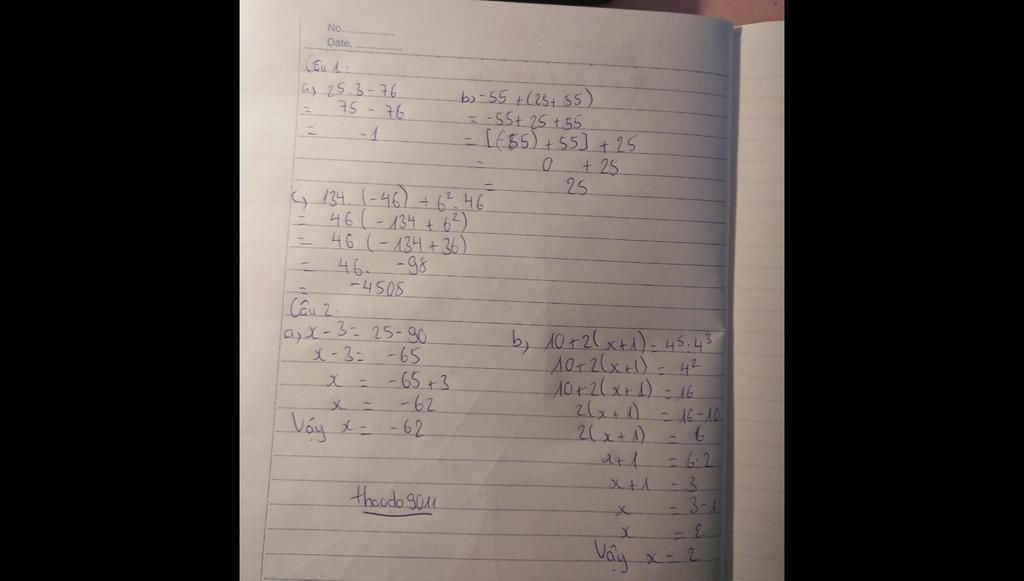 No. ................
Date. ................
Câu 1:
a, 25.3 - 76
= 75 - 76
= -1
b, -55 + (25 + 55)
= -55 + 25 + 55
= [(-55) + 55] + 25
= 0 + 25
= 25
c, 134. (-46) + 6². 46
= 46 (-134 + 6²)
= 46 (-134 + 36)
= 46. -98
= -4508
Câu 2:
a, x - 3 = 25 - 90
x - 3 = -65
x = -65 + 3
x = -62
Vậy x = -62
thaodo9011
b, 10 + 2(x+1) = 4⁵:4³
10 + 2(x+1) = 4²
10 + 2(x+1) = 16
2(x+1) = 16 - 10
2(x+1) = 6
x+1 = 6:2
x+1 = 3
x = 3-1
x = 2
Vậy x = 2